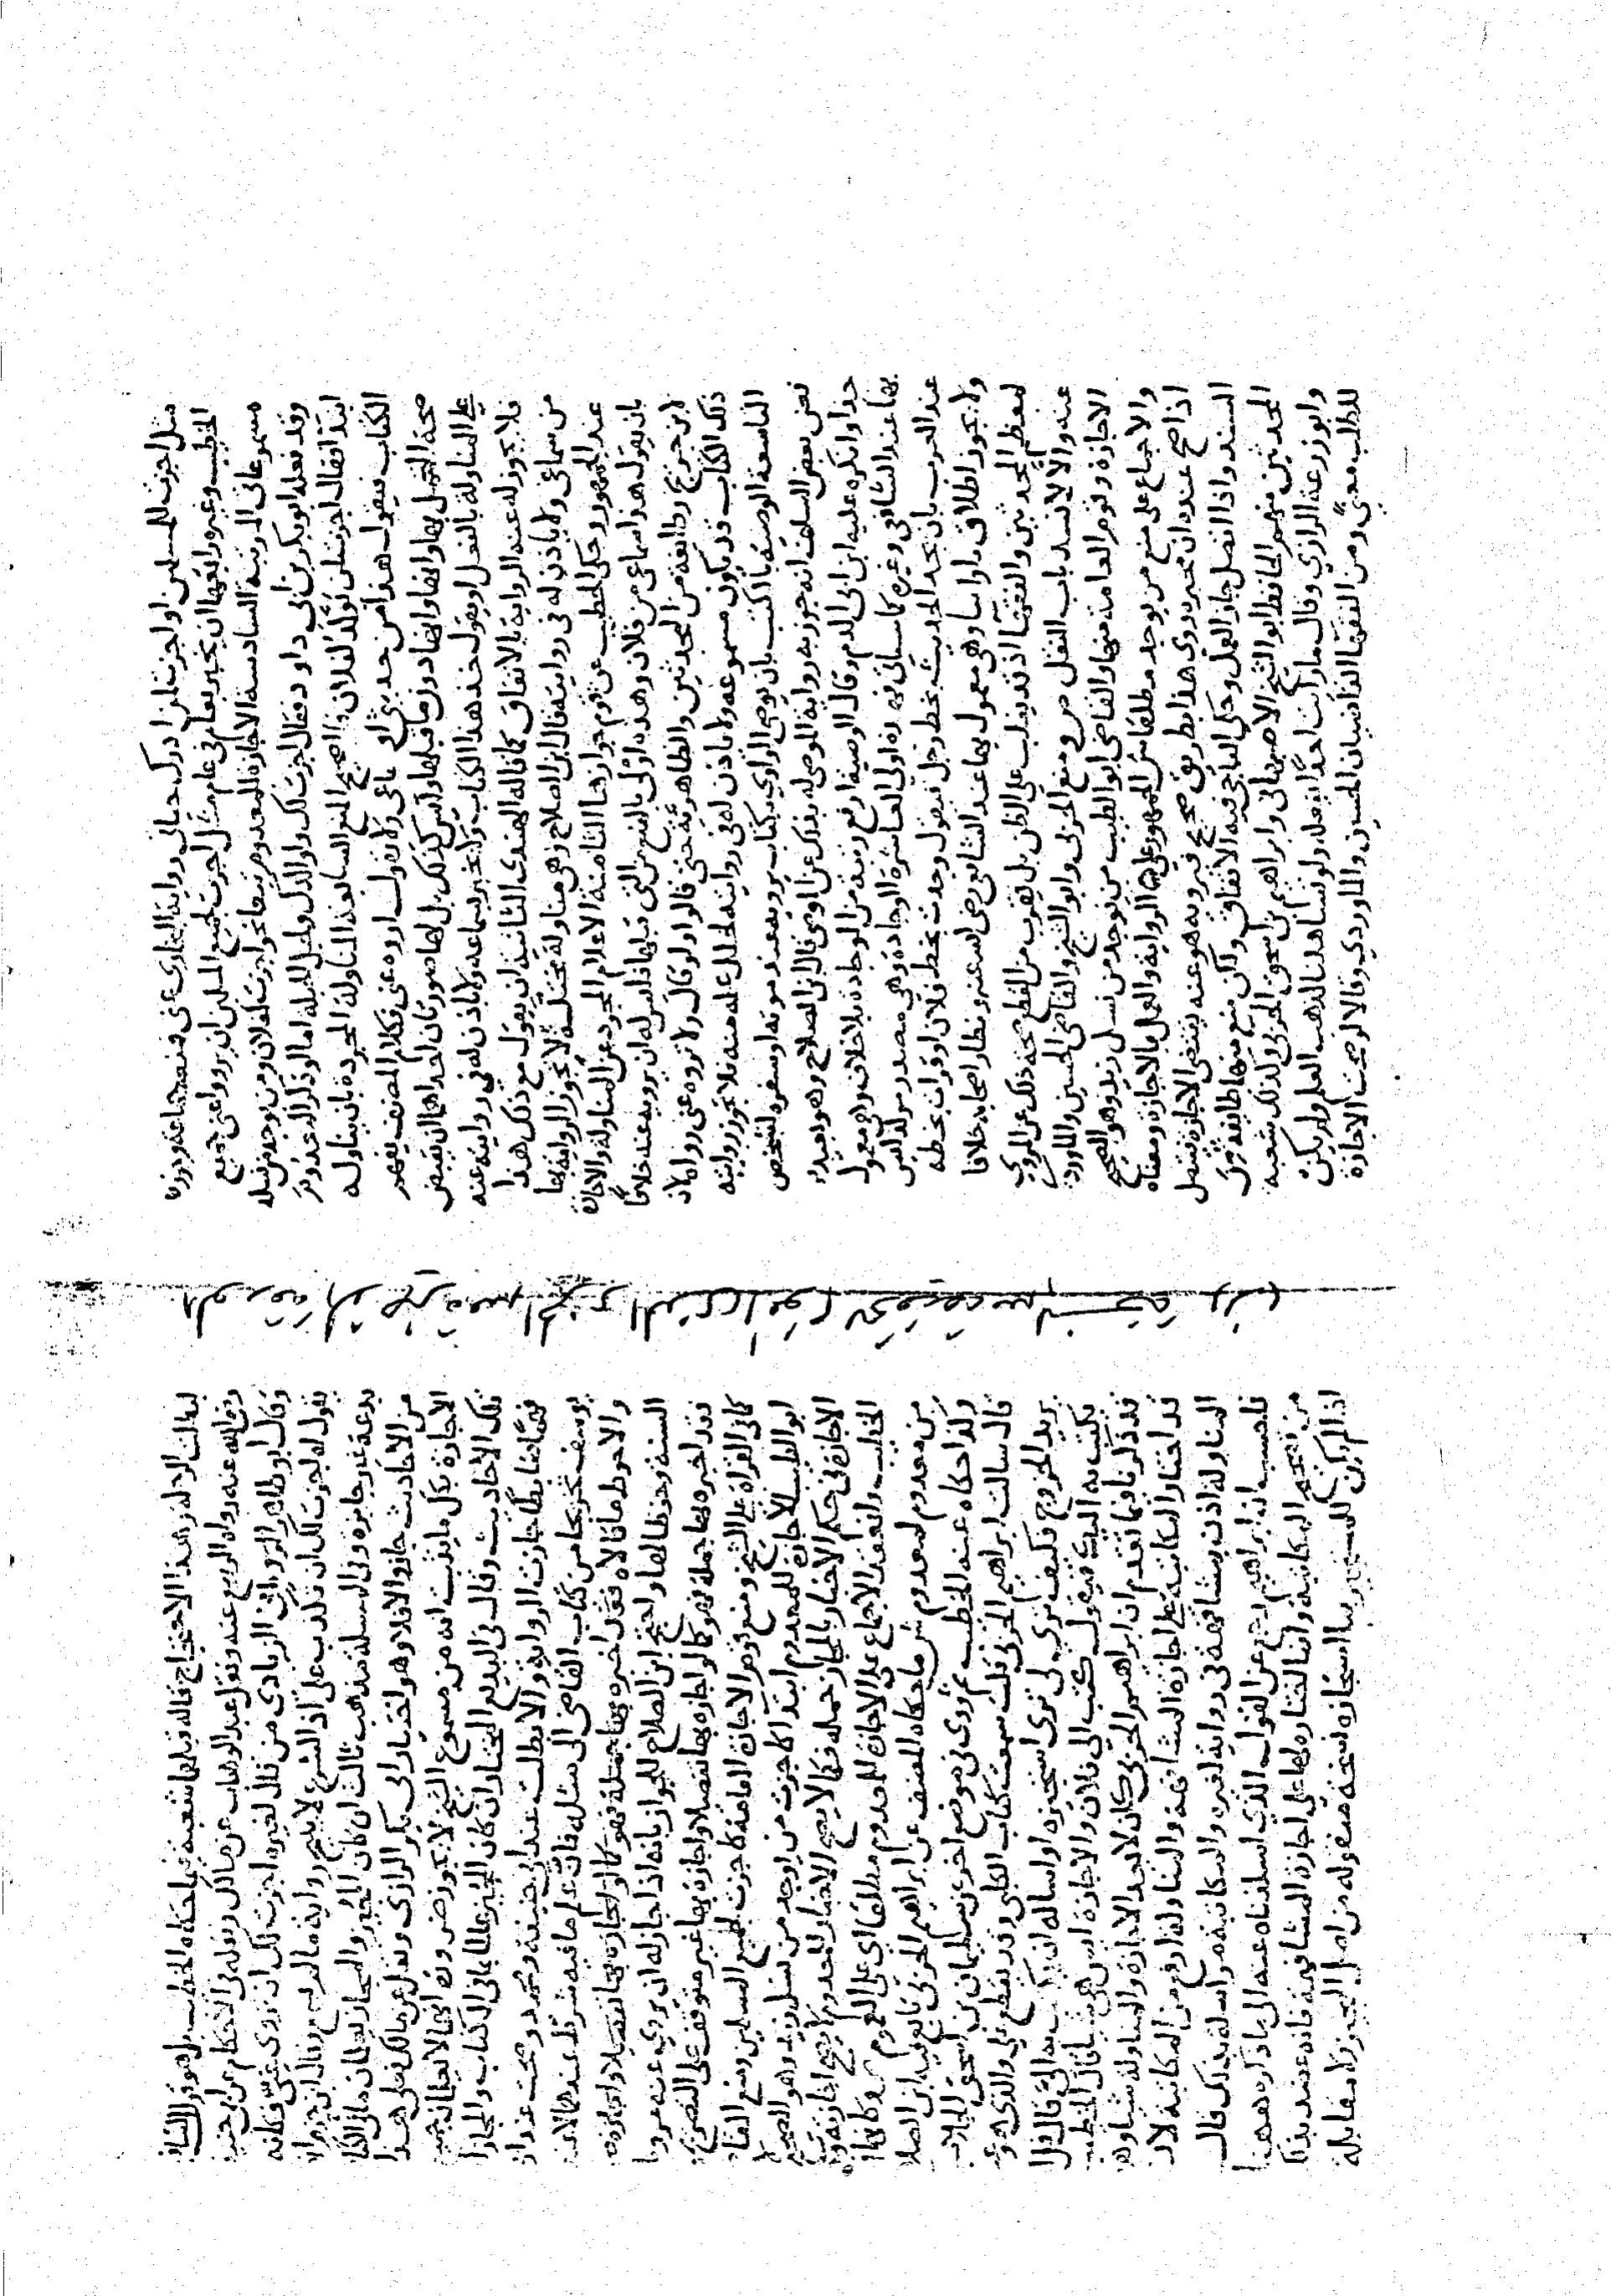 مثل اجزت للمسلمين او اجزت لمن ادرك حياتي رواية البخاري عني فمنعه جماعة وجوزه
الخطيب وغيره ان يجيز بعام في عام مثل اجزت لجميع المسلمين ان يرووا عني جميع
مسموعاتي المرتبة السادسة الاجازة للمعدوم تبعا نحو اجزت لفلان ومن يوجد من نسله
وقد فعله ابو بكر بن ابي داود فقال اجزت لك ولاولادك ولحبل الحبلة اما لو ذكر المعدوم
ابتدا فقال اجزت لمن يولد لفلان فالصحيح المنع السابعة المناولة المجردة بان يناوله
الكتاب فيقول هذا من حديثي او سماعي ولا يقول اروه عني فكلام المصنف يفهم
صحة التحمل بها وانها دون ما قبلها وليس كذلك بل لها صورتان احداهما ان يقتصر
على المناولة بالفعل او يقول خذ هذا الكتاب ولا يخبر بسماعه ولا ياذن له في روايته عنه
فلا يجوز له عنه الرواية بالاتفاق كما قاله الهندي الثانية ان يقول مع ذلك هذا
من سماعي ولا ياذن له في روايته قال ابن الصلاح وهي مناولة مختلة لا تجوز الرواية بها
عند الجمهور وحكى الخطيب عن قوم جوازها الثامنة الاعلام المجرد عن المناولة والاجازة
بان يقول هذا سماعي من فلان وهذه اولى بالمنع من التي قبلها فليس له ان يرويه عنه خلافا
لابن جريج وطائفة من المحدثين والظاهرية حتى قالوا لو قال ولا تروه عني رواه لان
ذلك الكتاب قد يكون مسموعه ولا ياذن له في روايته لخلل علمه منه فلا تجوز روايته
التاسعة الوصية بالكتب بان يوصي الراوي بكتاب يرويه عند موته او سفره لشخص
فعن بعض السلف انه جوز به رواية الموصى له بذلك عن الموصي قال ابن الصلاح وهو بعيد
جدا وانكره عليه ابن ابي الدم وقال الوصية ارفع رتبة من الوجادة بلا خلاف وهي معمول
بها عند الشافعي وغيره كما سياتي فهذه اولى العاشرة الوجادة وهي مصدر مولد ليس
عند العرب بان يجد الحديث بخط رجل فيقول وجدت بخط فلان او قرات بخطه
ولا يجوز اطلاق نا وانبا وهي معمول بها عند الشافعي رضي الله عنه ونظار اصحابه خلافا
لمعظم المحدثين والفقها اذ قد يغلب على الظن بل يقرب من القطع صحة ذلك عن المروي
عنه والا لانسد باب النقل ص ومنع الحربي وابو الشيخ والقاضي الحسين والماوردي
الاجازة وقوم العامة منها والقاضي ابو الطيب من يوجد من نسل زيد وهو الصحيح
والاجماع على منع من يوجد مطلقا ش الجمهور على الرواية والعمل بالاجازة ومعناه
اذا صح عنده ان غيره روى هذا بطريق صحيح فيرويه هو عنه بمقتضى الاجازة فيتصل
السند واذا اتصل جاز العمل وحكى الباجي فيه الاتفاق ولكن منع منها طائفة من
المحدثين منهم الحافظ ابو الشيخ الاصبهاني وابراهيم بن اسحق الحربي وكذلك شعبة
وابو زرعة الرازي وقال ما رايت احدا يفعله ولو تساهلنا لذهب العلم ولم يكن
للطلب معني ومن الفقها القاضيان الحسين والماوردي وقالا لو صحت الاجازة
لبطلت الرحلة وهذا الاحتجاج قاله قبلهما شعبة فيما حكاه الخطيب بل هو قول الشافعي
رضي الله عنه رواه الربيع عنه ونقل عبد الوهاب عن مالك ونقله في الاحكام عن ابي حنيفة
وقال ابو طاهر الزيادي من قال لغيره اجزت لك ان تروي عني فكانه
يقول له اجزت لك ان تكذب علي اذ الشرع لا يبيح رواية ما لم يسمع وقال ابن حزم انها
بدعة غير جائزة وفي المسلة مذهب ثالث ان كان المجيز والمجاز يعلمان ما في الكتاب
من الاحاديث جاز والا فلا وهو اختيار ابي بكر الرازي ونقل عن مالك فعلى هذا
الاجازة بكل ما يثبت انه من مسموع الشيخ لا يجوز ضرورة انهما لا يعلمان جميع
تلك الاحاديث وقال في البديع المختار ان كان المجيز عالما بما في الكتاب والمجاز
فهما ضابطا جازت الرواية والا بطلت عند ابي حنيفة ومحمد وصحت عند ابي
يوسف تخريجا من كتاب القاضي الى مثله فان علم ما فيه شرط عندهما لا عنده
والاحوط ما قالاه
السنة وحفظا لها واحتج ابن الصلاح للجواز بانه اذا اجاز له ان يروي عنه مروياته
فقد اخبره بها جملة فهو كما لو اجازه بها تفصيلا واجازه بها غير متوقف على التصريح
كما في القراة على الشيخ ومنع قوم الاجازة العامة كاجزت لجميع المسلمين ومنع القاضي
ابو الطيب الاجازة للمعدوم ابتدا كاجزت من يوجد من نسل زيد وهو الصحيح
الاجازة في حكم الاخبار بالمجاز جملة فكما لا يصح الاخبار للمعدوم لا يصح اجازته ونقل
الخطيب وانعقد الاجماع على الاجازة للمعدوم مطلقا اي على العموم
من معدوم لمعدوم ش ما حكاه المصنف عن ابراهيم الحربي تابع فيه ابن الصلاح
وكذا حكاه عنه الخطيب ثم روى في موضع اخر عن سليمان بن اسحق الجلاب
قال سالت ابراهيم الحربي قلت سمعت كتاب الكلبي وقد تقطع علي والذي هو عنده
يريد الخروج فكيف ترى لي ترى استجيزه او اساله ان يكتب به الي قال قل له
يكتب به اليك فتقول كتب الي فلان والاجازة ليس هي شيا قال الخطيب
قد ذكرنا فيما تقدم ان ابراهيم الحربي كان لا يعد الاجازة والمناولة شيا وههنا
قد اختار المكاتبة على اجازة المشافهة والمناولة ارفع من المكاتبة لان
المناولة اذن ومشافهة في رواية لغيره والمكاتبة مراسلة بذلك قال
فاحسب ان ابراهيم رجع عن القول الذي اسلفناه عنه الى ما ذكره ههنا
من تصحيح المكاتبة وانما اختاره لها على اجازة المشافهة فانه عند بذلك
اذا لم يكن للمستجيز بما استجازه نسخة منقولة من اصل المجيز ولا مقابلة